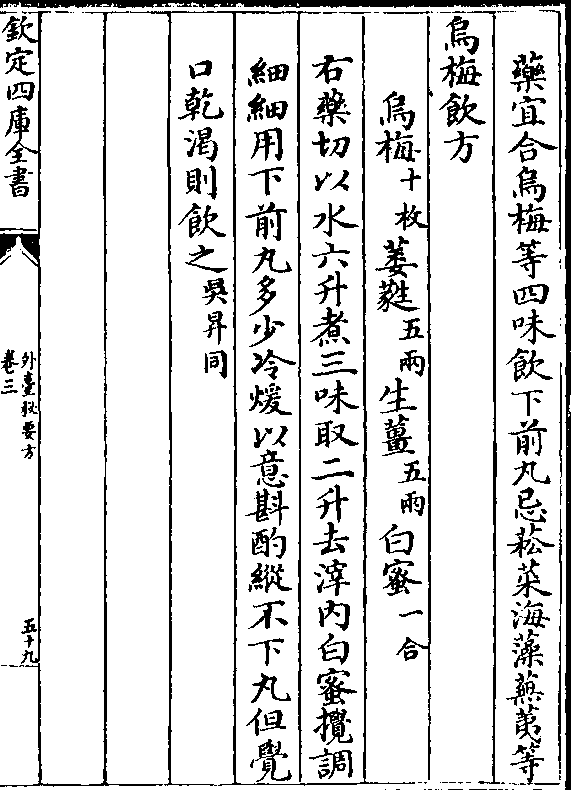 藥宜合烏梅等四味飲下前丸忌菘菜海藻蕪荑等
烏梅飲方
烏梅十枚 萎蕤五兩 生薑五兩 白蜜一合
右藥切以水六升煮三味取二升去滓内白蜜攪調
細細用下前丸多少冷煖以意斟酌縱不下丸但覺
口乾渴則飲之吳昇同
欽定四庫全書
外臺秘要方
卷三
五十九